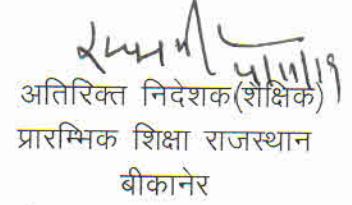 4/11/19
अतिरिक्त निदेशक(शैक्षिक)
प्रारम्भिक शिक्षा राजस्थान
बीकानेर